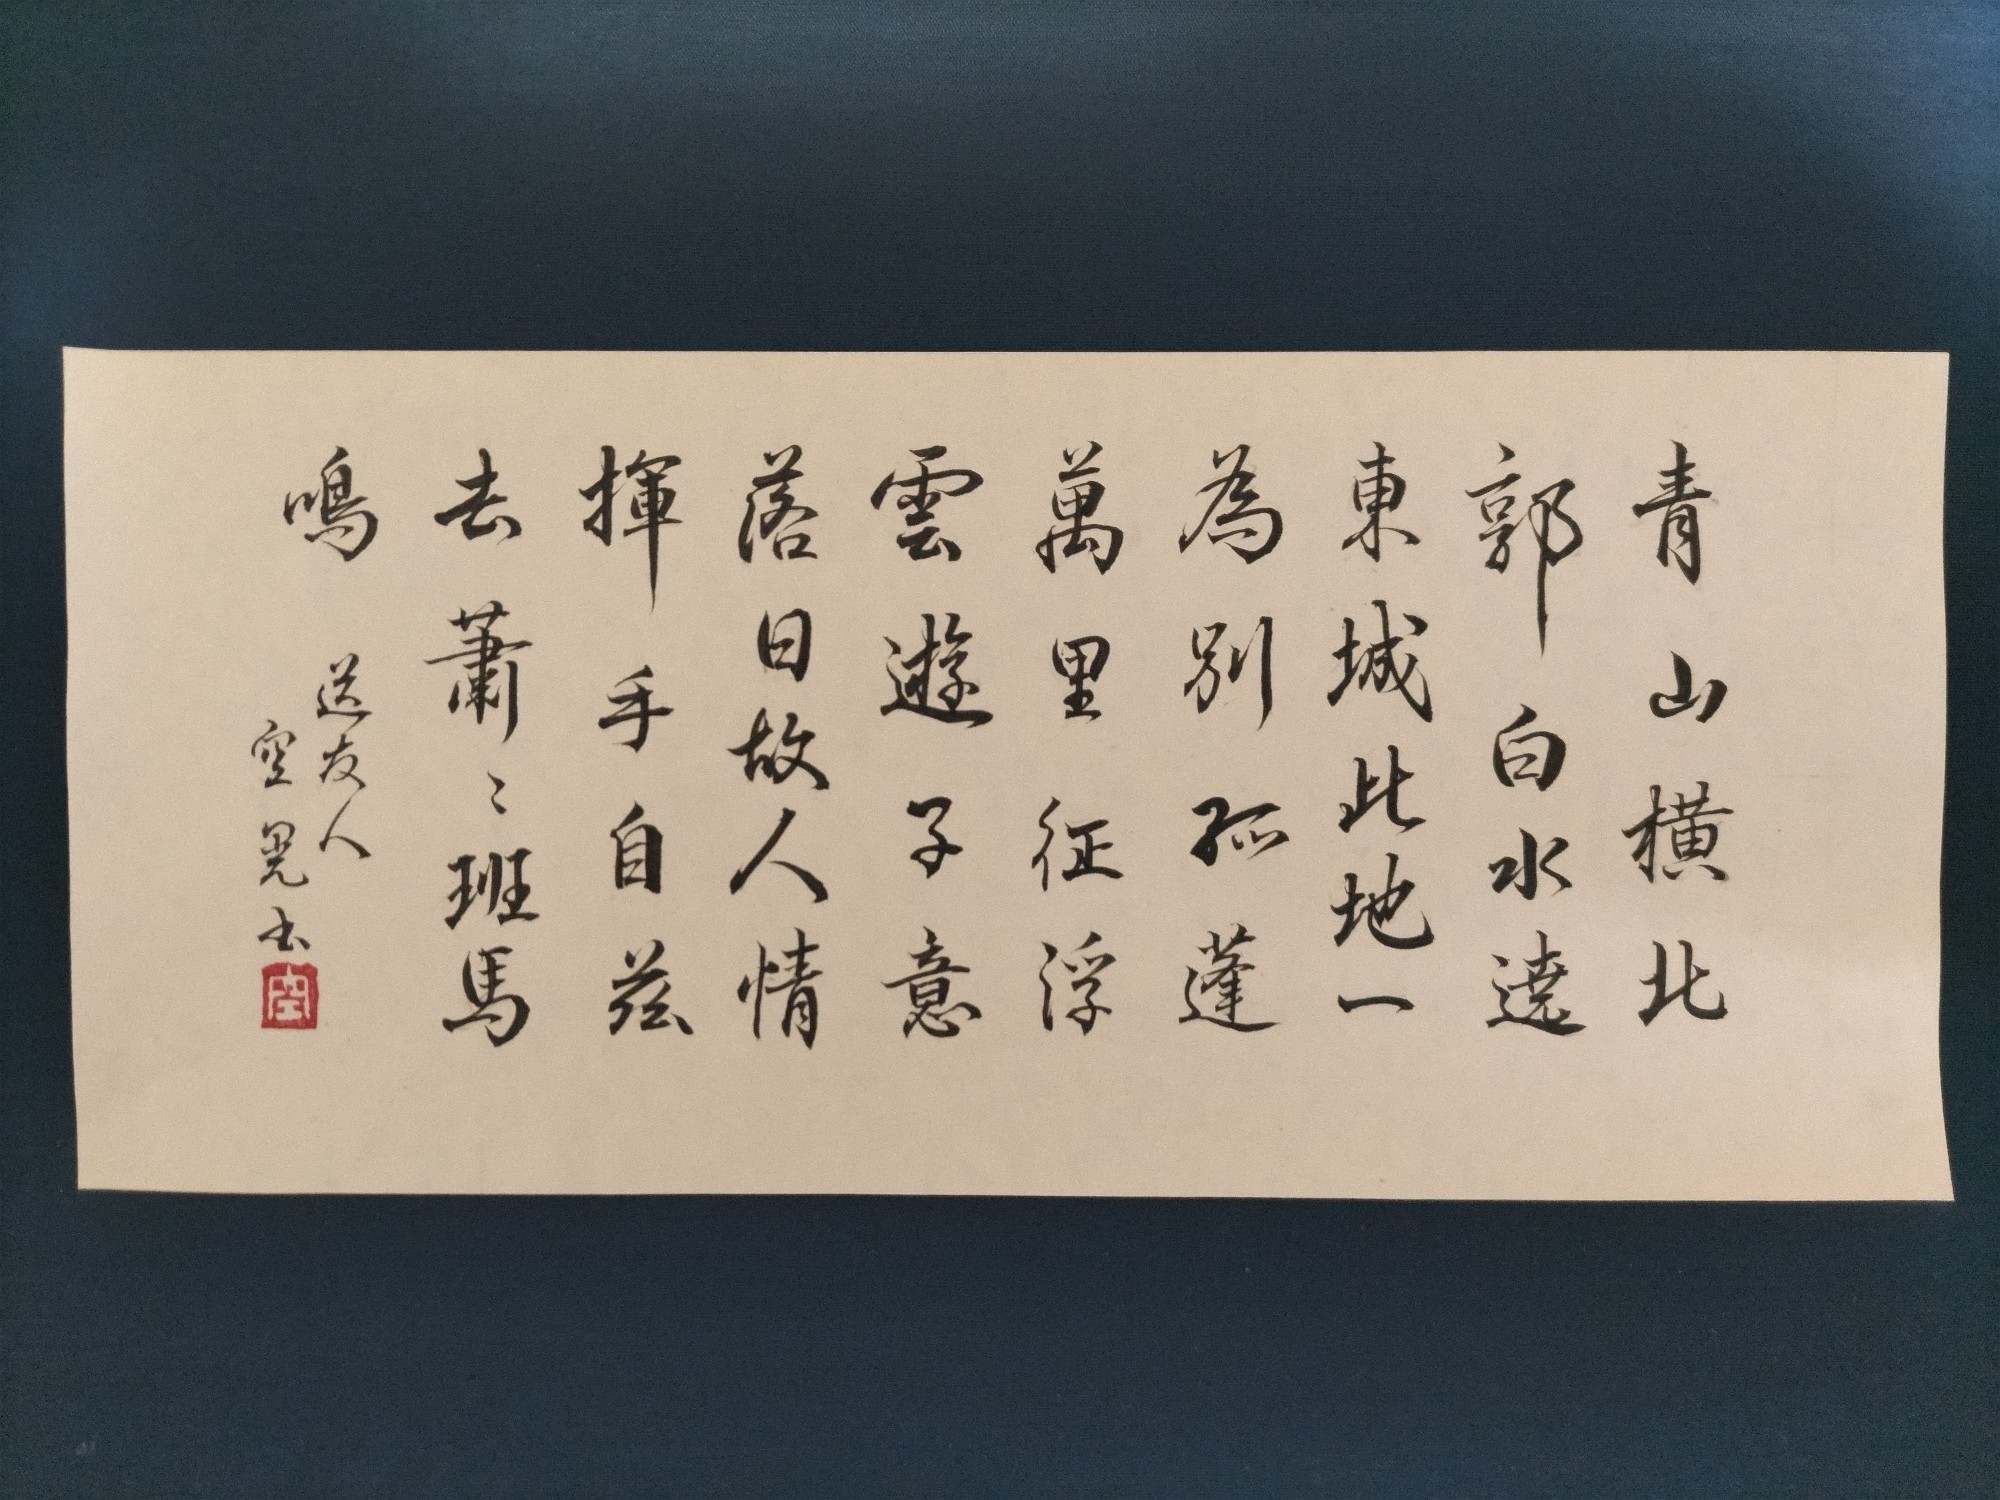 青山橫北
郭白水遶
東城此地一
為別孤蓬
萬里征浮
雲遊子意
落日故人情
揮手自茲
去蕭〻班馬
鳴
送友人
空晃书
空